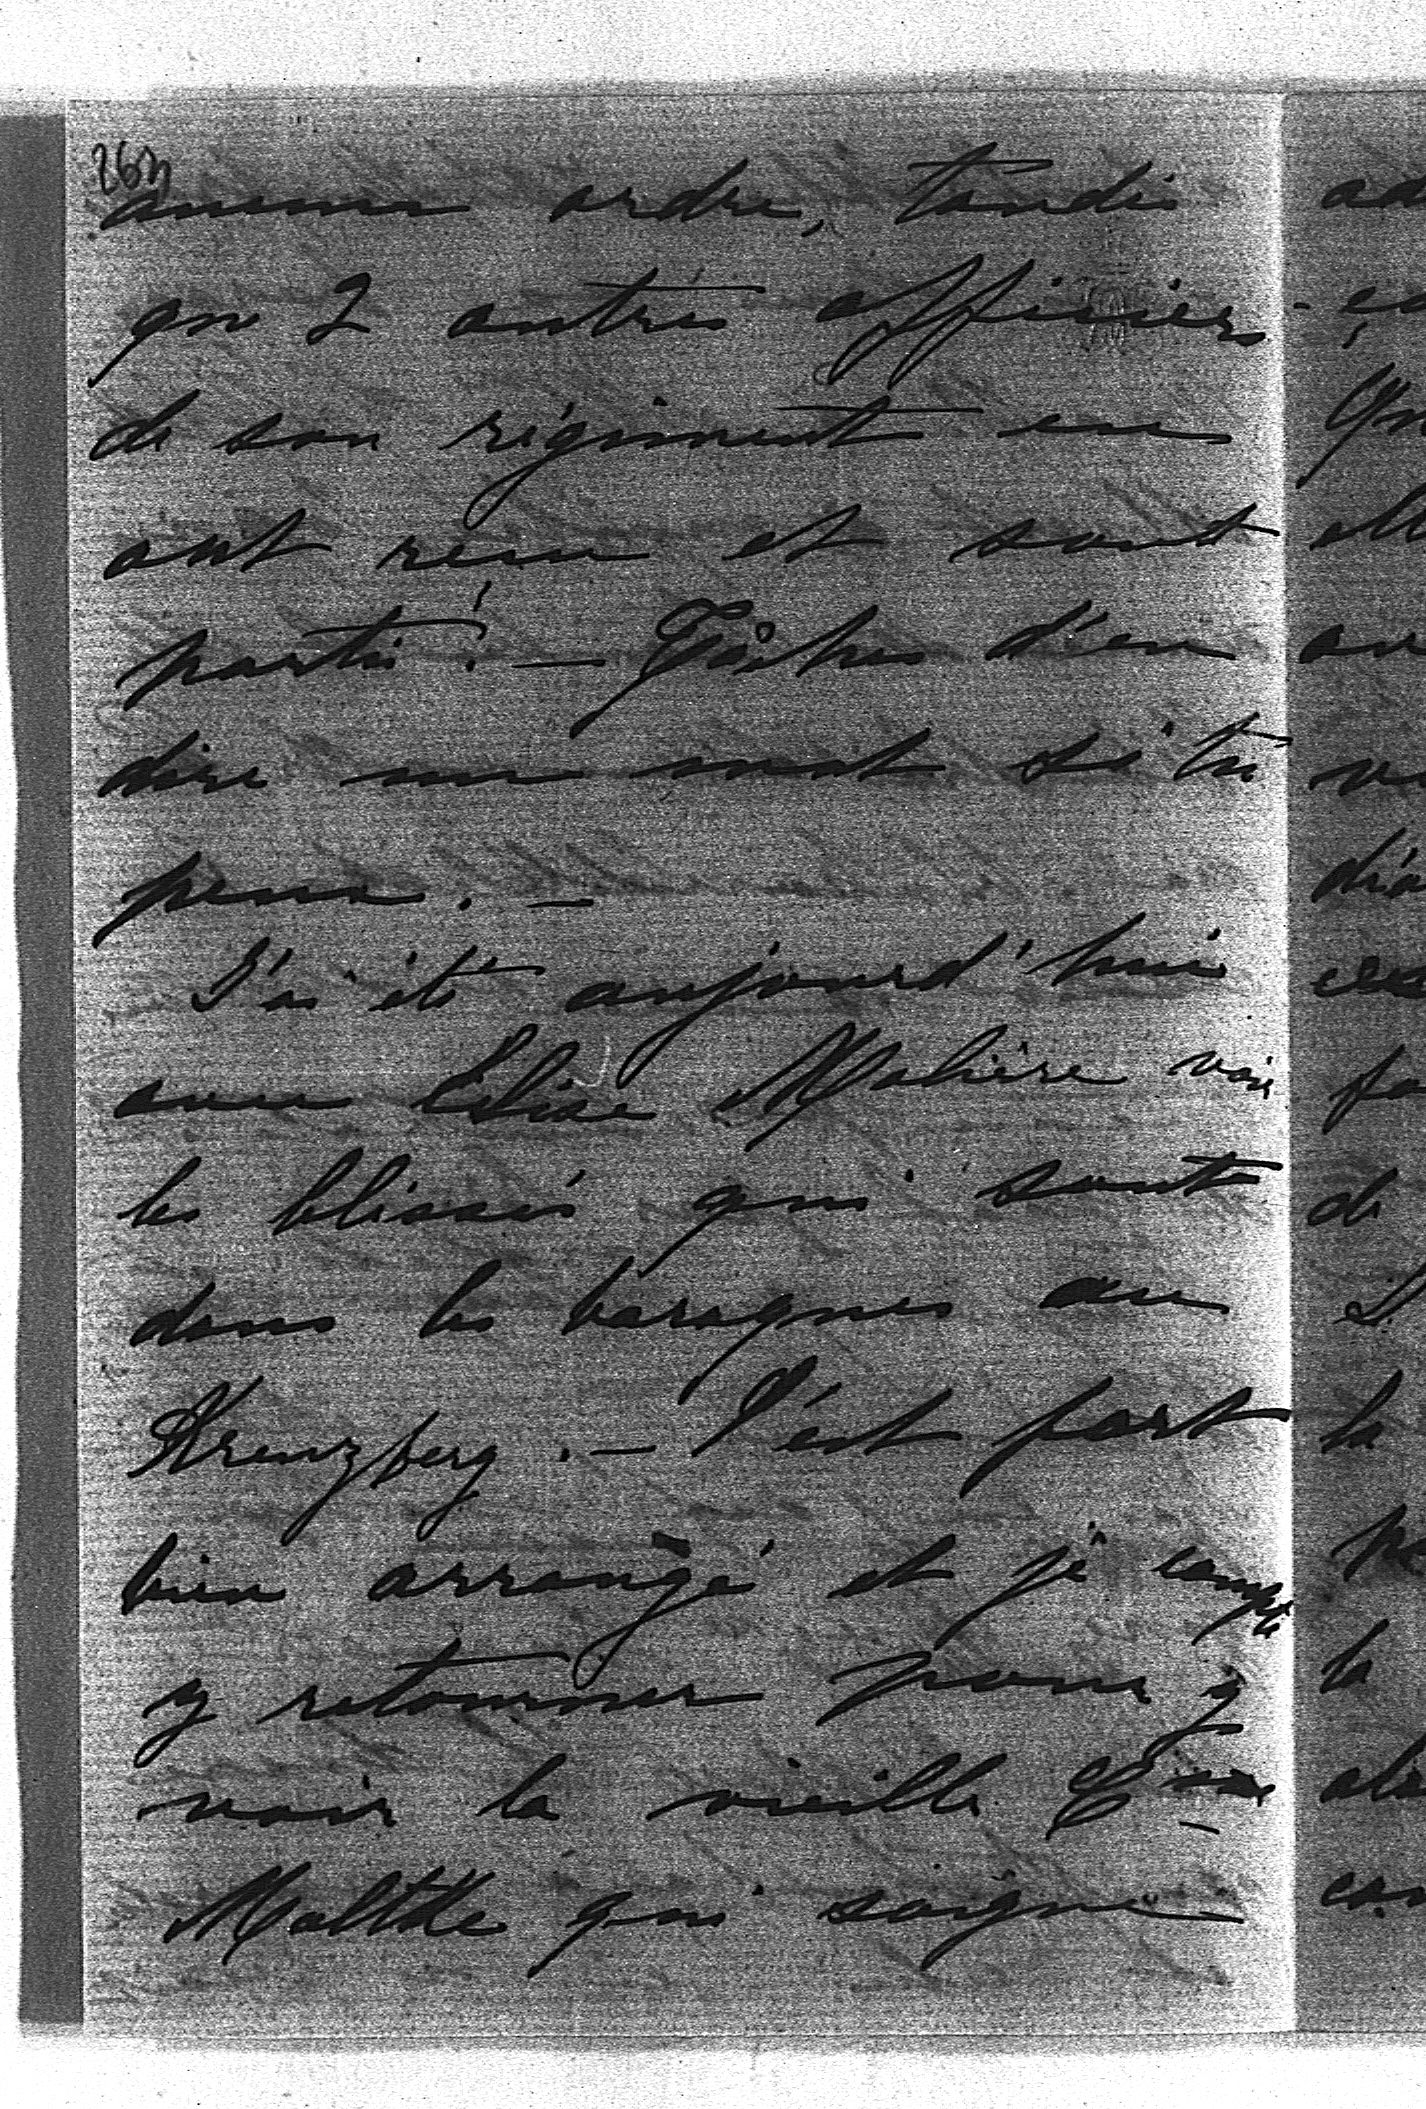 aucun ordre, tandis
que 2 autres officiers
de son régiment en
ont reçu et sont
partis! — Tâches d'en
dire un mot si tu
peux. —
J'ai été aujourd'hui
avec Elise voir
les blessés qui sont
dans les baraques au
Kreuzberg. — C'est fort
bien arrangé et je compte
y retourner pour y
voir la vieille
Moltke qui soigne